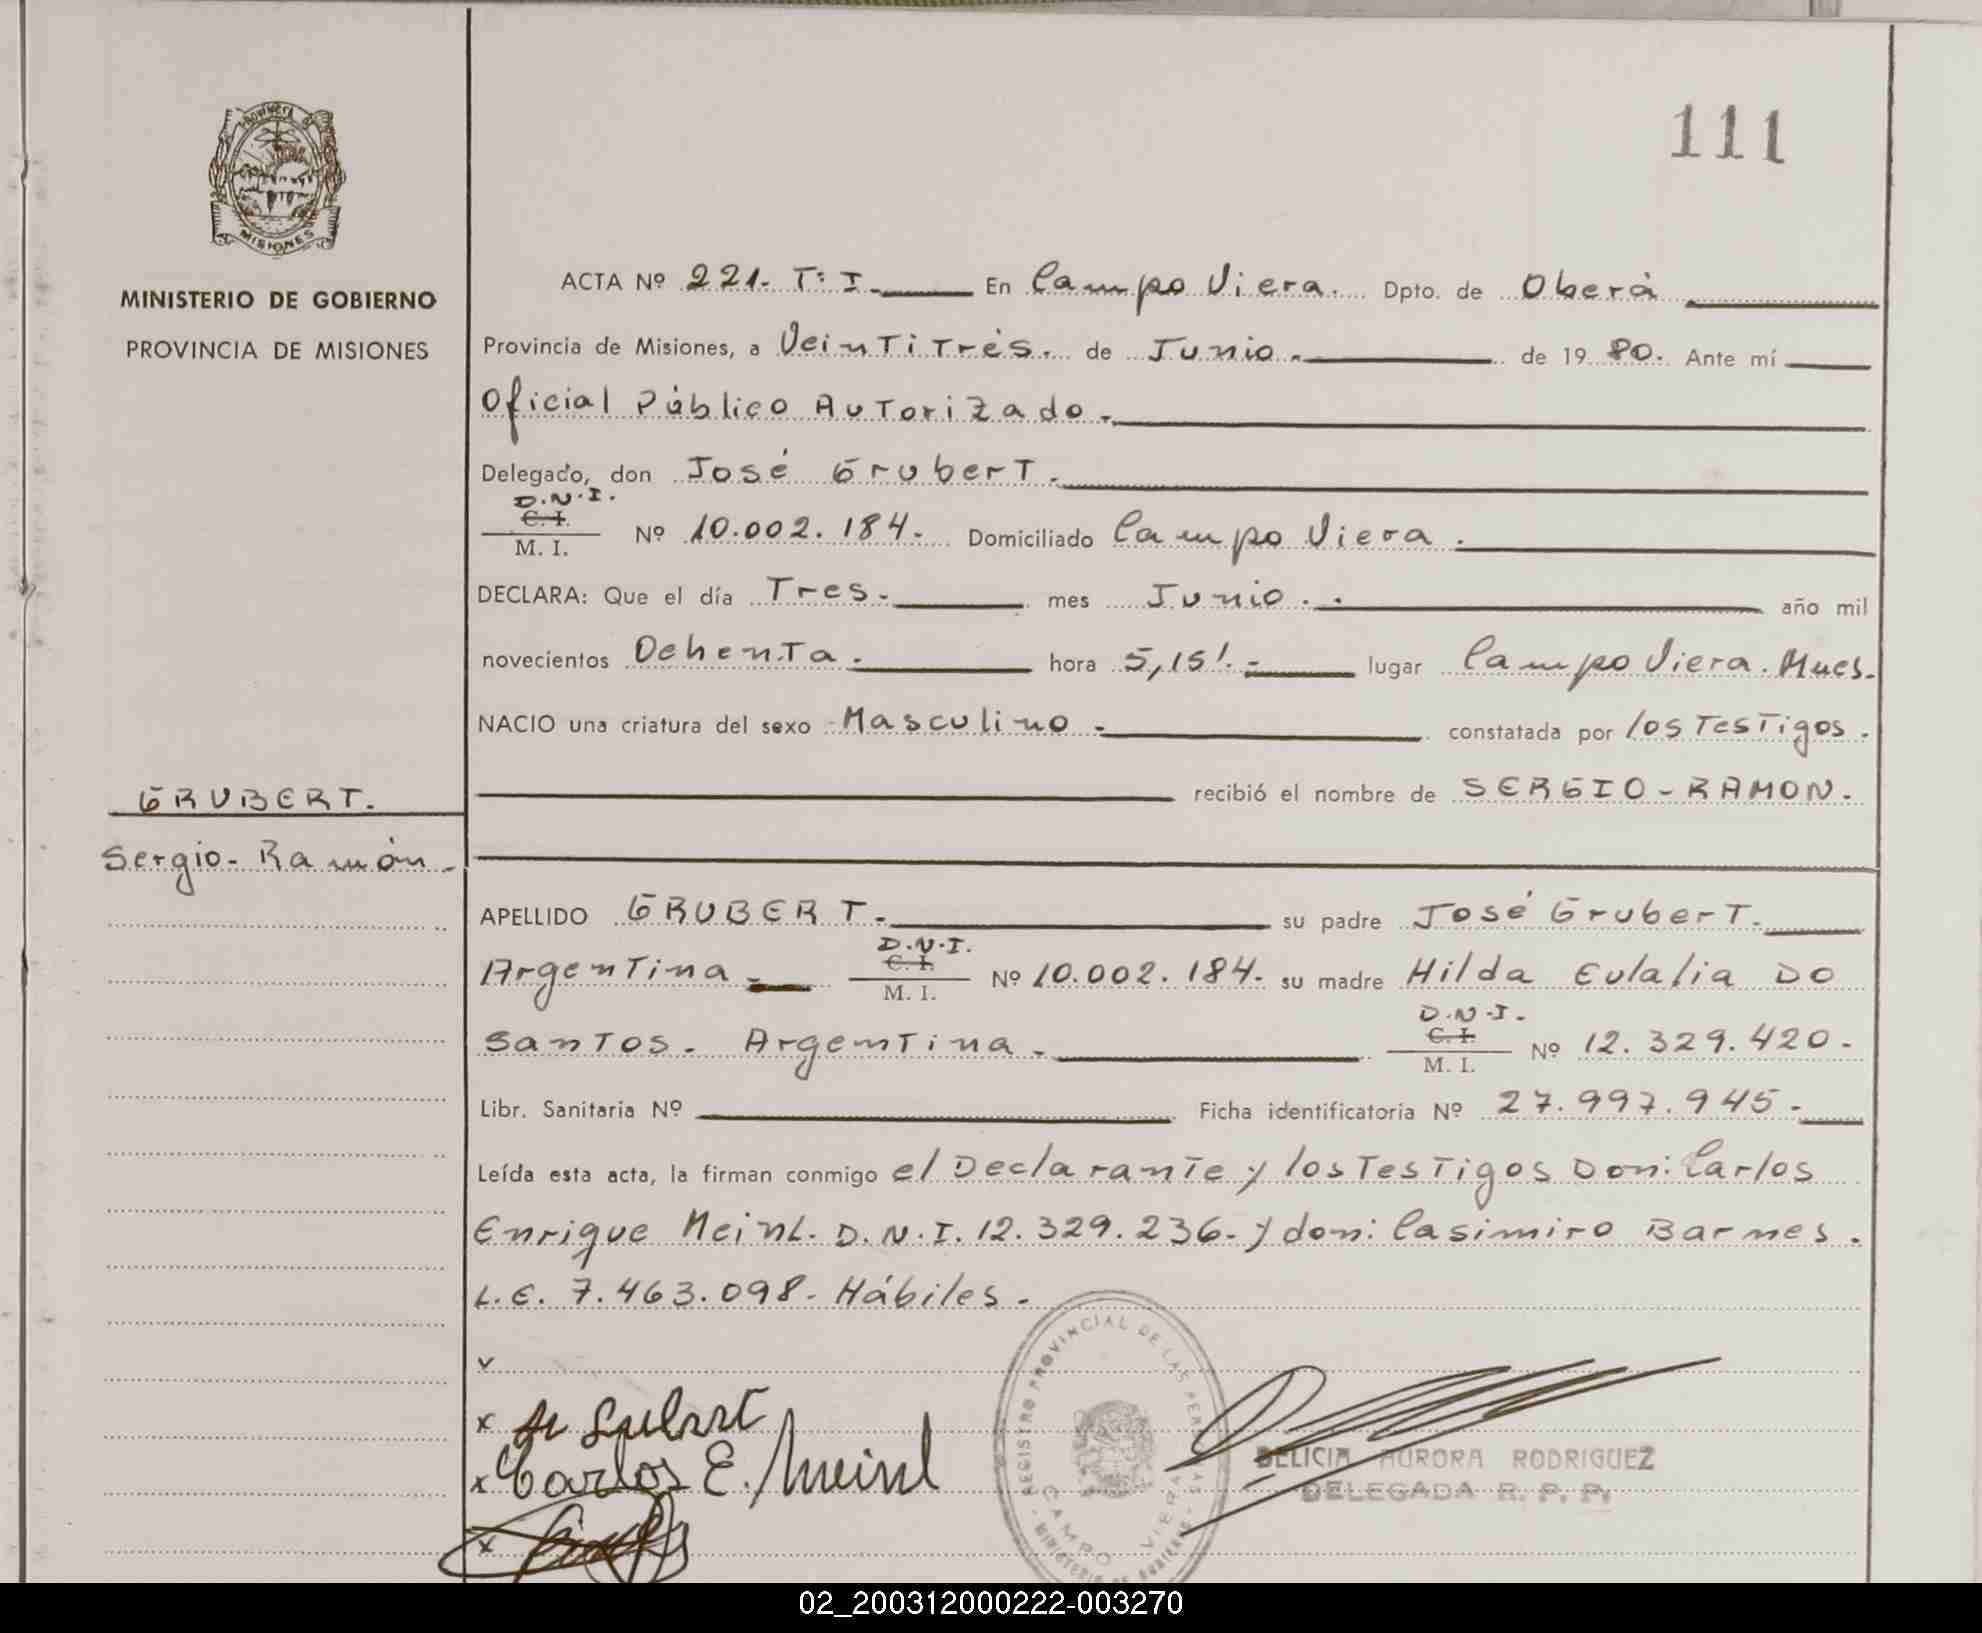 111
PROVINCIA DE
MISIONES
MINISTERIO DE GOBIERNO
PROVINCIA DE MISIONES
GRUBERT.
Sergio-Ramón.-
ACTA Nº 221- T: I. En Campo Viera. Dpto. de Oberá
Provincia de Misiones, a VeinTiTrés. de Junio. de 19 80. Ante mí
Oficial Público AuTorizado.
Delegado, don José GruberT.
D.N.I.
C. I.
M. I. Nº 10.002.184. Domiciliado Campo Viera.
DECLARA: Que el día Tres. mes Junio. año mil
novecientos OchenTa. hora 5,15'.- lugar Campo Viera. Mnes.
NACIO una criatura del sexo Masculino constatada por los TesTigos.
recibió el nombre de SERGIO-RAMON.
APELLIDO GRUBERT. su padre José GruberT.
D.N.I.
C. I.
ArgenTina M. I. Nº 10.002.184. su madre Hilda Eulalia DO
D.N.I.
C. I.
SanTos. ArgenTina. M. I. Nº 12.329.420.-
Libr. Sanitaria Nº Ficha identificatoria Nº 27.997.945.
Leída esta acta, la firman conmigo el DeclaranTe y los TesTigos Don: Carlos
Enrique MeinL. D.N.I. 12.329.236. y don: Casimiro Barnes.
L.E. 7.463.098. Hábiles.
x
x Carlos E. Meinl
x
REGISTRO PROVINCIAL DE LAS PERSONAS
CAMPO VIERA
MINISTERIO DE GOBIERNO
DELICIA AURORA RODRIGUEZ
DELEGADA R. P. P.
02_200312000222-003270